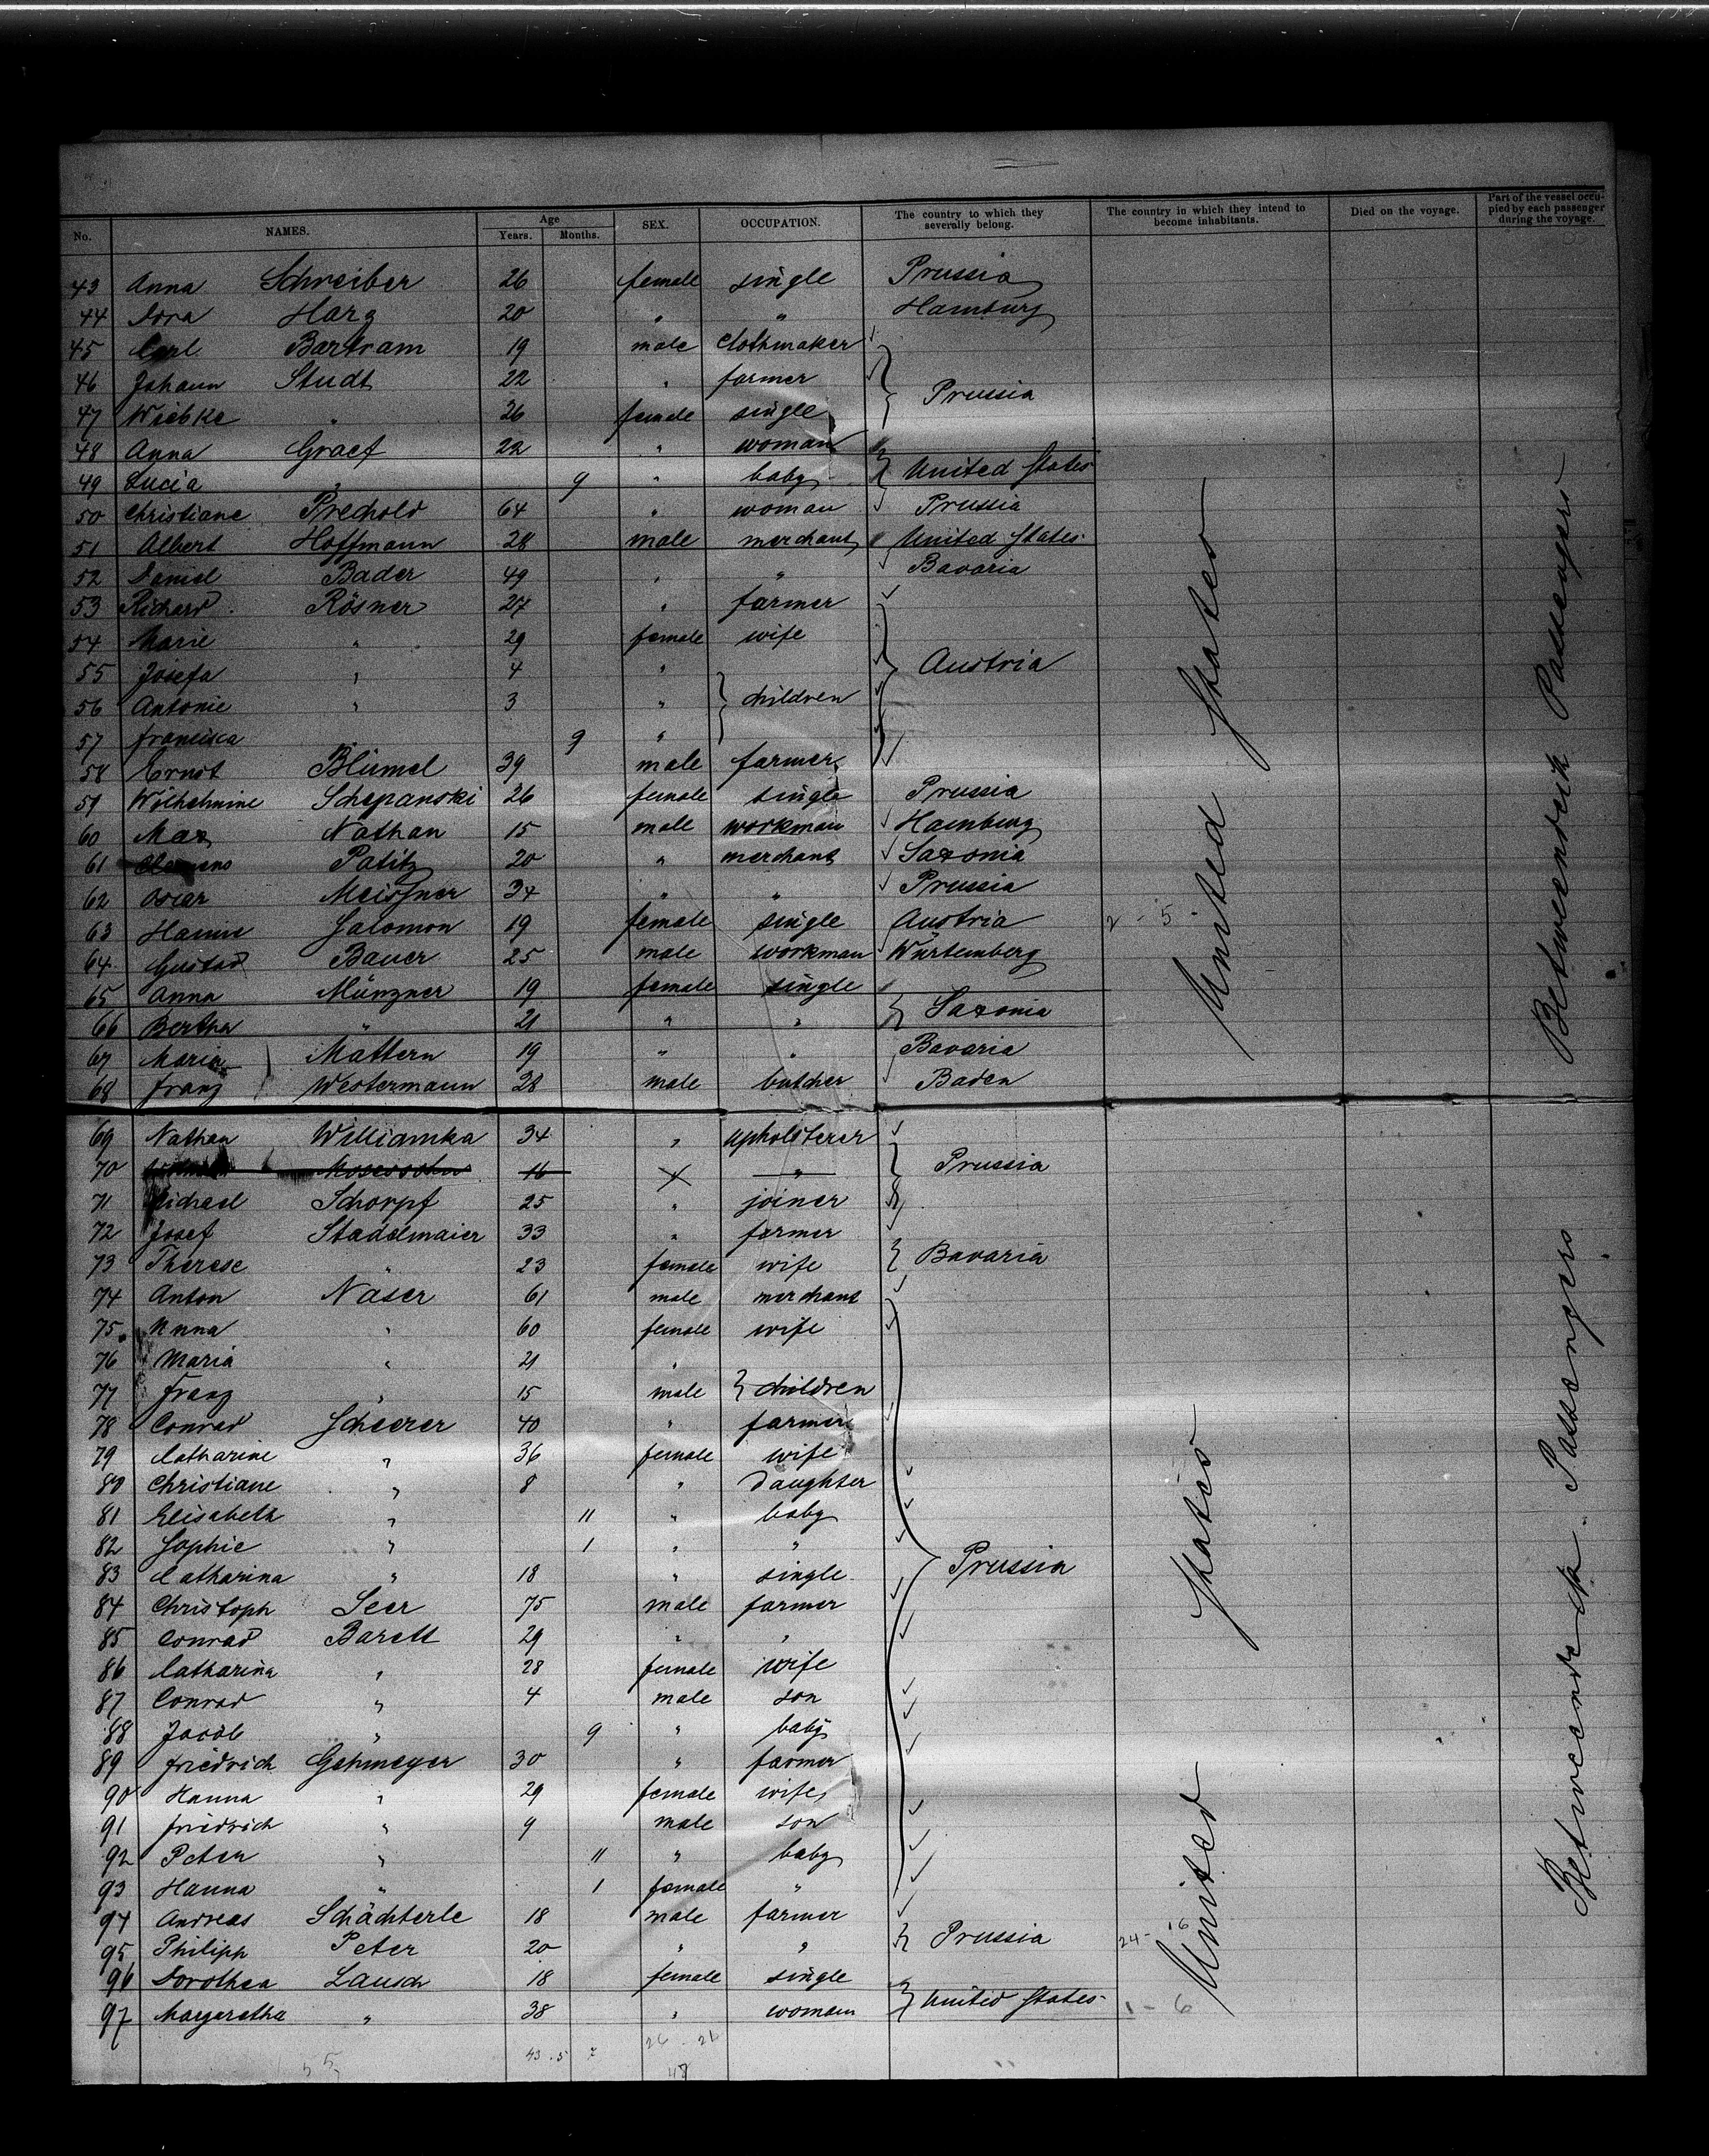 No. NAMES. Age Years. Months. SEX. OCCUPATION. The country to which they severally belong. The country in which they intend to become inhabitants. Died on the voyage. Part of the vessel occupied by each passenger during the voyage.
43 Anna Schreiber 26 female single Prussia
44 Dora Harg 20 " " Hamburg
45 Carl Bartram 19 male Clothmaker
46 Johann Studt 22 " farmer Prussia
47 Wiebke " 26 female single
48 Anna Graef 22 " woman
49 Lucia " 9 " baby United States
50 Christiane Prechold 64 " woman Prussia
51 Albert Hoffmann 28 male merchant United States
52 Daniel Bader 49 " " Bavaria
53 Richard Rösner 27 " farmer
54 Marie " 29 female wife
55 Josefa " 4 " Austria
56 Antonie " 3 " children
57 Francisca " 9 "
58 Ernst Blümel 39 male farmer
59 Wilhelmine Schepanski 26 female single Prussia
60 Max Nathan 15 male workman Hamburg
61 Clemens Patitz 20 " merchant Saxonia
62 Oscar Meissner 34 " " Prussia
63 Salomon 19 female single Austria 2 - 5 -
64 Gustav Bauer 25 male workman Würtemberg
65 Anna Münzner 19 female single
66 Bertha " 21 " " Saxonia
67 Maria Mattern 19 " " Bavaria
68 Franz Westermann 28 male butcher Baden
United States
Betweendeck Passengers
69 Nathan Williamka 34 " upholsterer
70 Mosessohn 16 " Prussia
71 Michael Schorpf 25 " joiner
72 Josef Stadelmaier 33 " farmer
73 Therese " 23 female wife Bavaria
74 Anton Näser 61 male merchant
75 Anna " 60 female wife
76 Maria " 21 "
77 Franz " 15 male children
78 Conrad Scheerer 40 " farmer
79 Catharine " 36 female wife
80 Christiane " 8 " Daughter
81 Elisabeth " 11 " baby
82 Sophie " 1 " "
83 Catharina " 18 " single Prussia
84 Christoph Seer 75 male farmer
85 Conrad Barett 29 " "
86 Catharina " 28 female wife
87 Conrad " 4 male son
88 Jacob " 9 " baby
89 Friedrich Gehmeyer 30 " farmer
90 Hanna " 29 female wife
91 Friedrich " 9 male son
92 Peter " 11 " baby
93 Hanna " 1 female "
94 Andreas Schächterle 18 male farmer
95 Philipp Peter 20 " " Prussia 24 - 16
96 Dorothea Lausch 18 female single
97 Margaretha " 38 " woman United States 1 - 6
United States
Betweendeck Passengers
55 43 . 5 7 26 . 21
47